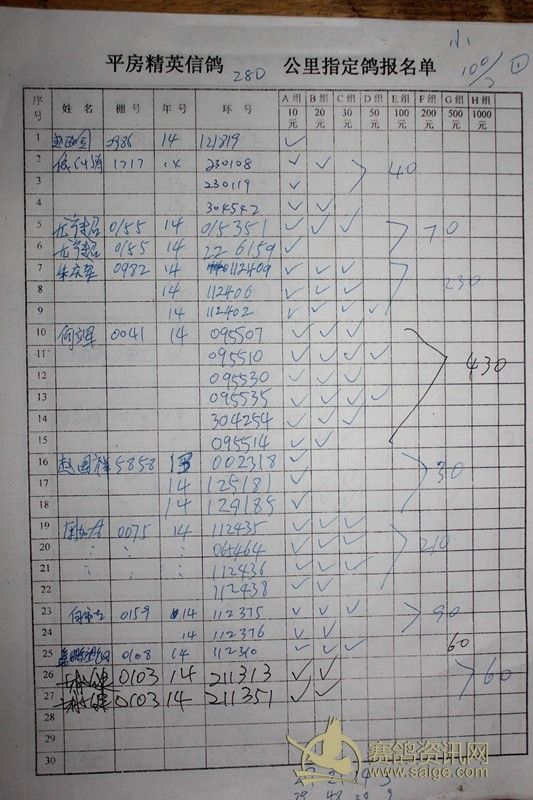 小
100/
平房精英信鸽 280 公里指定鸽报名单
序号 姓名 棚号 年号 环号 A组10元 B组20元 C组30元 D组50元 E组100元 F组200元 G组500元 H组1000元
1 14 121819 ✓
2 1717 14 230108 ✓ ✓ 40
3 230119 ✓
4 304542 ✓ ✓
5 0155 14 015351 ✓ ✓ ✓ 70
6 0155 14 226159 ✓
7 0982 14 112409 ✓ ✓ ✓
8 14 112406 ✓ ✓ ✓ 230
9 14 112402 ✓ ✓ ✓ ✓
10 0041 14 095507 ✓ ✓ ✓
11 095510 ✓ ✓ ✓ ✓
12 095530 ✓ ✓ ✓ 430
13 095535 ✓ ✓ ✓ ✓
14 304254 ✓ ✓ ✓
15 095514 ✓ ✓
16 赵国祥 5858 002318 ✓ 30
17 14 125181 ✓
18 14 129185 ✓
19 0075 14 112435 ✓ ✓ ✓
20 065464 ✓ ✓ ✓ 210
21 112436 ✓ ✓ ✓
22 112438 ✓ ✓
23 0159 14 112375 ✓ ✓ ✓ 90
24 14 112376 ✓ ✓
25 0108 14 112310 ✓ ✓ ✓ 60
26 0103 14 211313 ✓ ✓ 60
27 0103 14 211351 ✓ ✓
28
29
30
赛鸽资讯网
www.saige.com